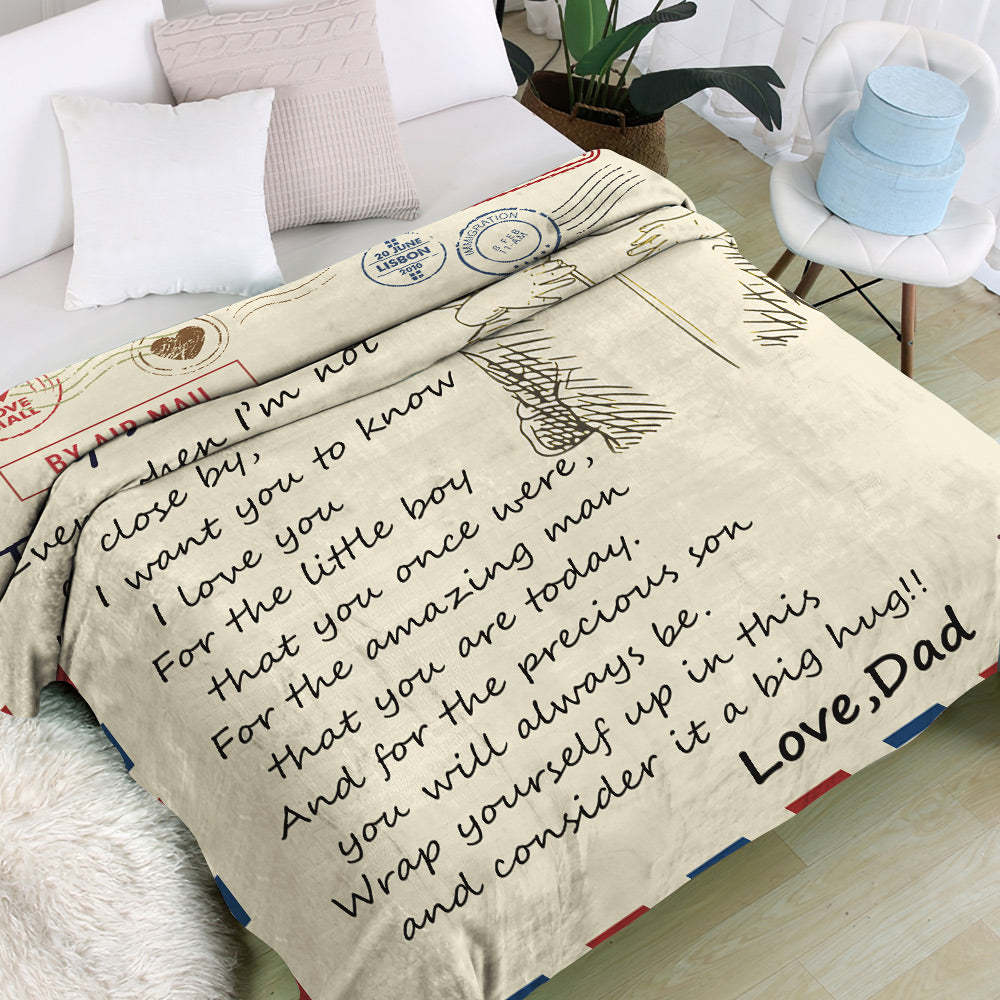 20 JUNE
LISBON
2010
IMMIGRATION
8 FEB
11 AM
LOVE
MALL
BY AIR MAIL
Even when I'm not
close by,
I want you to know
I love you
For the little boy
that you once were,
For the amazing man
that you are today.
And for the precious son
you will always be.
Wrap yourself up in this
and consider it a big hug!!
Love,Dad